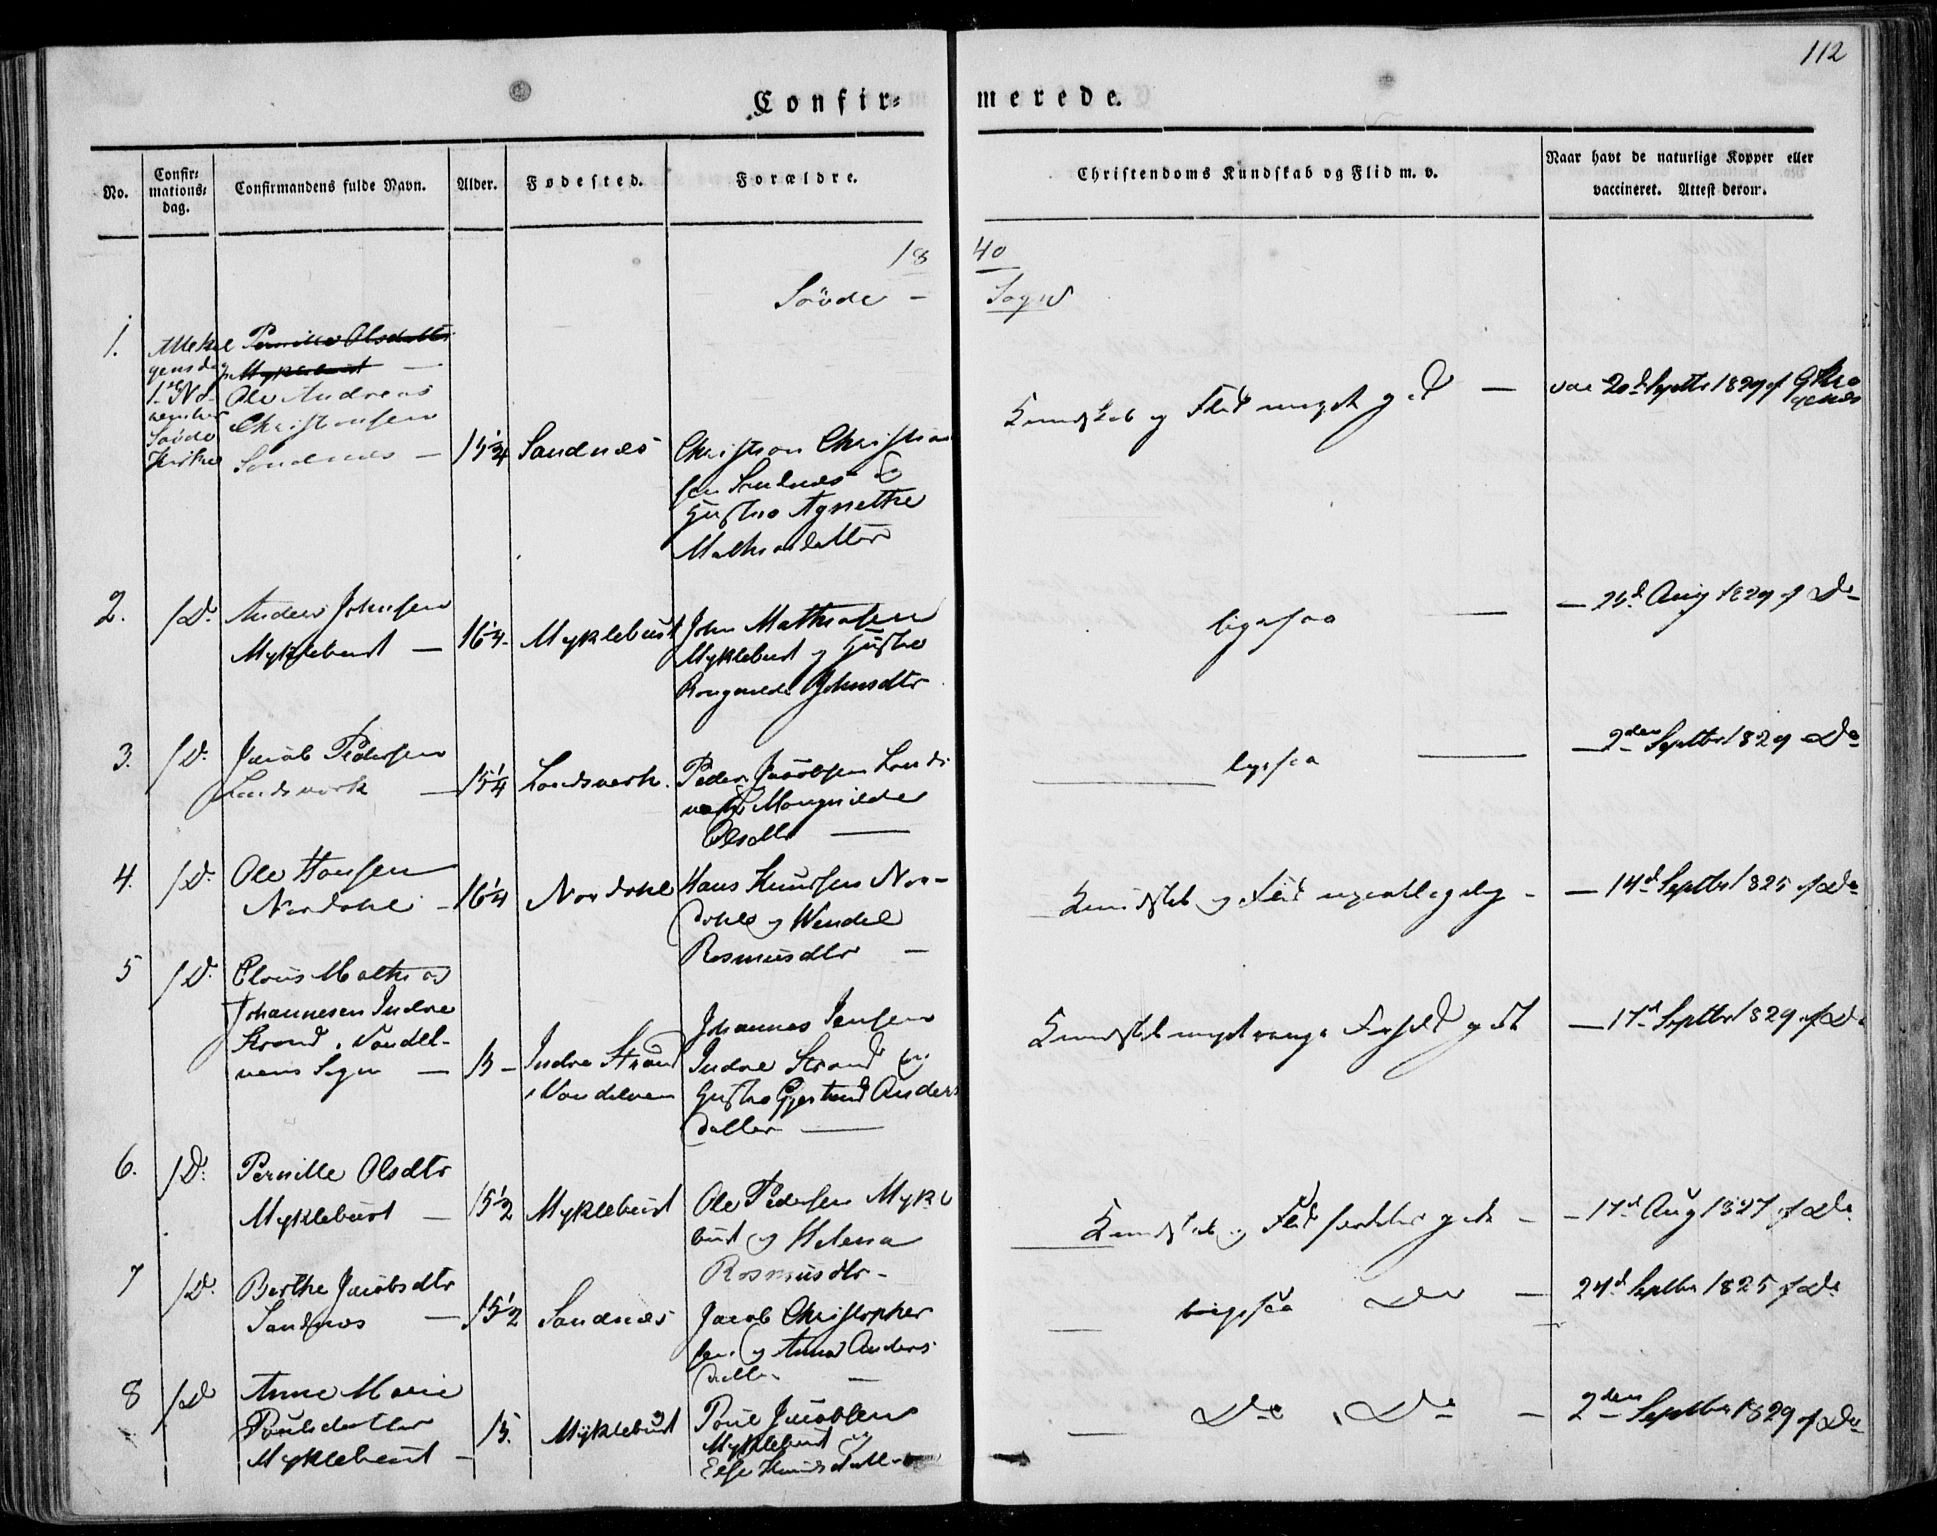 112
Confir= merede.
No.
Confir= mations= dag.
Confirmandens fulde Navn.
Alder.
Fødested.
Forældre.
Christendoms Kundskab og Flid m. v.
Naar havt de naturlige Kopper eller vaccineret. Attest derom.
18 40
Søvde - Sogn
1.
Allehel
gensdag
1ste No-
vember
Søvde
Kirke
Pernille Olsdatter
Myklebust
Ole Andreas
Christensen
Sandnes
15 1/4
Sandnæs
Christian Christian
sen Sandnæs og
Hustro Agnethe
Mathiasdatter
Kundskab og Flid meget god
vac 20d Septbr 1829 af
2.
/D.
Anders Johnsen
Myklebust
16 1/4
Myklebust
John Mathiasen
Myklebust og Hustro
Johnsdtr
ligesaa
25d Aug 1829 af Do
3.
/D.
Jacob Pedersen
Landsverk
15 1/4
Landsverk
Peder Jacobsen Lands
verk Magnilde
Olsdtr
ligesaa
2den Septbr 1829 Do
4.
/D.
Ole Hansen
Nordahl
16 1/4
Nordahl
Hans Knudsen Nor-
dahl og Wendel
Rasmusdtr
Kundskab og Flid
14d Septbr 1825 af Do
5
/D.
Claus Mathias
Johannesen Indre
Strand i Vandel-
vens Sogn
15
Indre Strand
i Vandelven
Johannes Jensen
Indre Strand og
Hustro Gjertrud Anders
datter
Kundskab meget
17d Septbr 1829 af Do
6.
/D.
Pernille Olsdtr
Myklebust
15 1/2
Myklebust
Ole Pedersen Mykle
bust og Helena
Rasmusdtr
Kundskab og Flid
17d Aug 1827 af Do
7
/D.
Berthe Jacobsdtr
Sandnæs
15 1/2
Sandnæs
Jacob Christopher
sen og Anna Anders
datter
ligesaa Do
24d Septbr 1825 af Do
8
/D
Anne Marie
Poulsdatter
Myklebust
15.
Myklebust
Poul Jacobsen
Myklebust og
Else Knudsdatter
Do Do
2den Septbr 1829 af Do